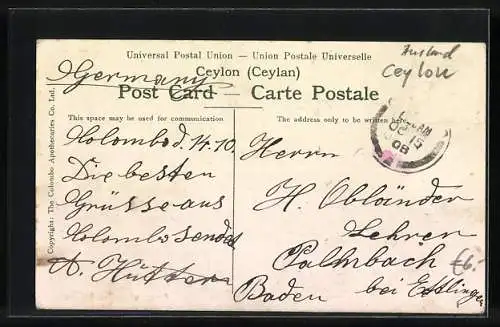 Universal Postal Union - Union Postale Universelle
Ausland
Ceylon
Germany
Ceylon (Ceylan)
Post Card — Carte Postale
This space may be used for communication
The address only to be written here
Copyright: The Colombo Apothecaries Co. Ltd.
Colombo d. 14.10.
Die besten
Grüsse aus
Colombo sendet
A. Hütter
Herrn
H. Obländer
Lehrer
Palmbach
bei Ettlingen
Baden
OC 15
08
€6.-